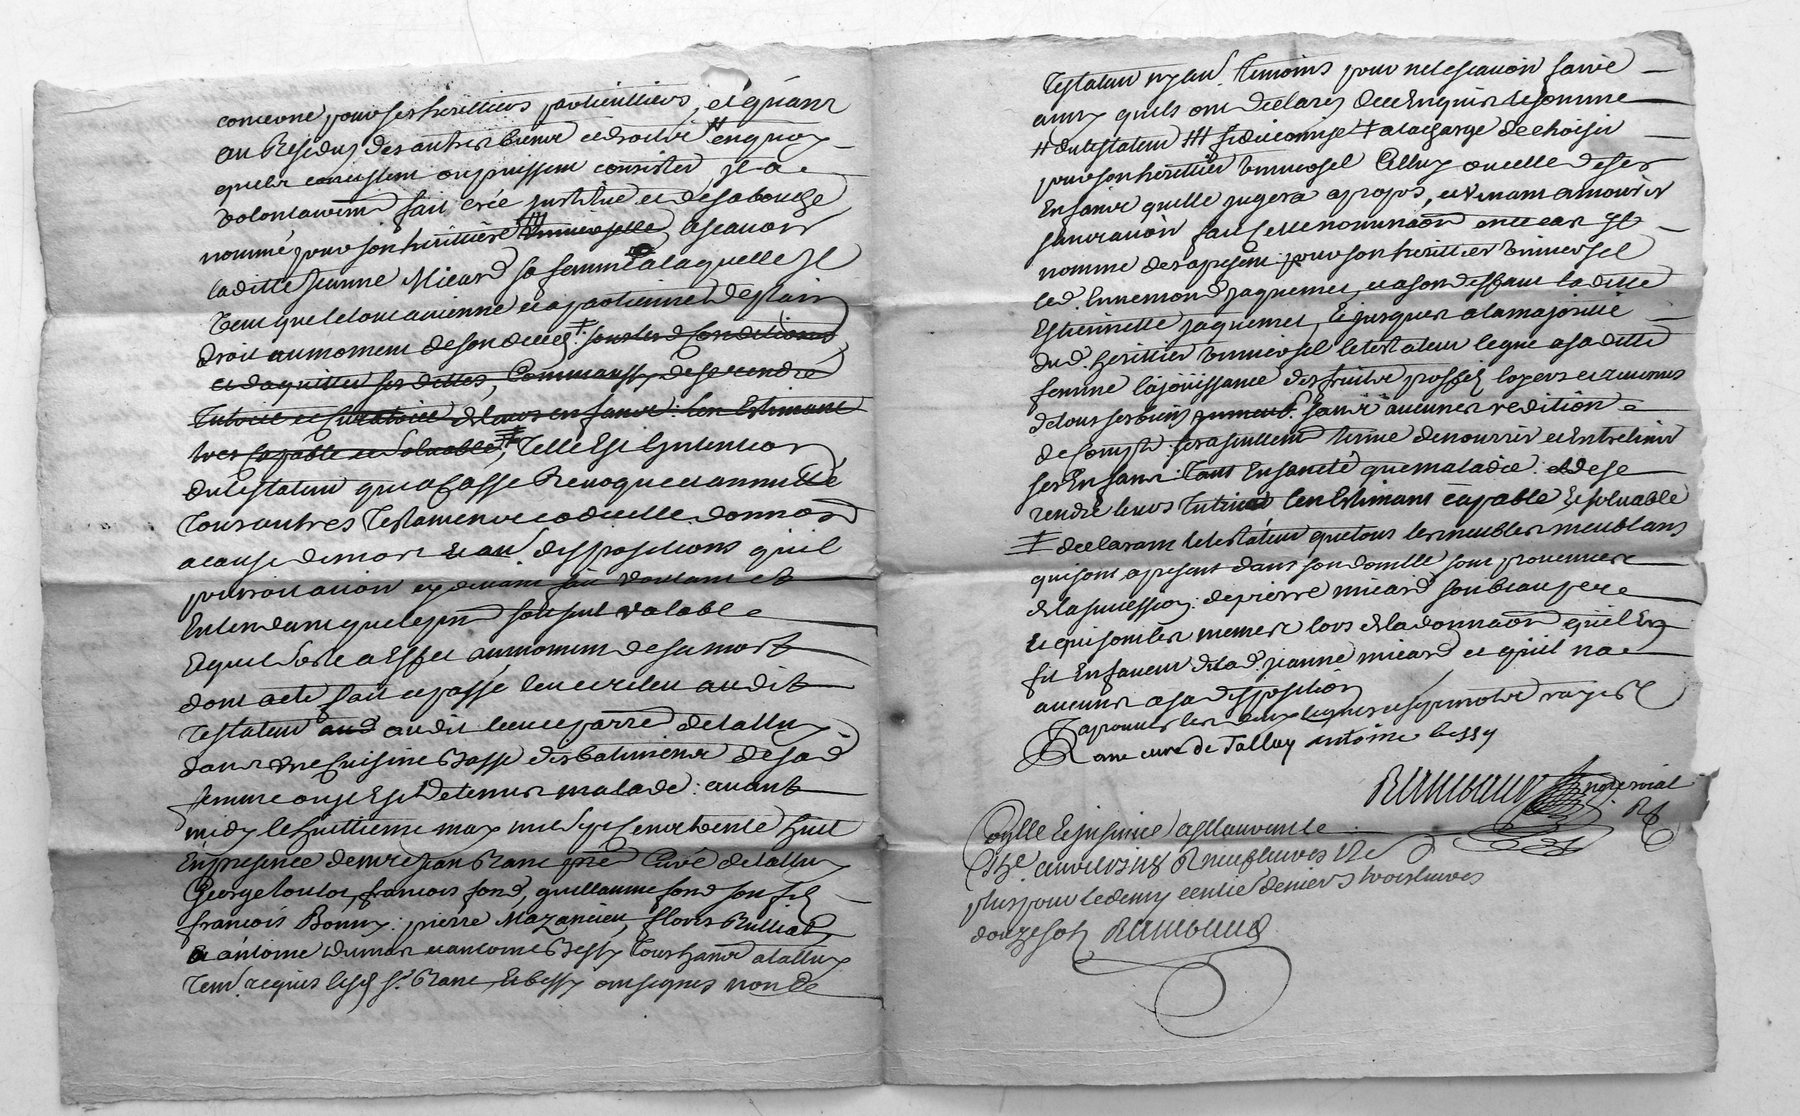 concerne pour ses herittiers particulliers, et quant
au Residu des autres biens et droits # en quoy
quils consistent ou puissent consister, il a
volontairemt fait créé institué et de sa bouche
nommé pour son herittiere ### universelle, ascavoir
laditte Jeanne Micard sa femme a laquelle il
veut que le tout avienne et apartienne de plain
droit au moment de son deces ‡ sous les d conditions
et daquitter ses dettes, Comme aussy de se rendre
Tutrice et Curatrice de leurs enfans len Estimant
tres capable et Solvable, ‡ Telle Est Lintention
du testateur qui a Casse Revoque et annullé
tous autres Testamens codicille donnaõn
a cause de mort et aũ dispositions quil
pourroit avoir cy devant fait voulant et
Entendant que le pnt soit seul valable
Et quil sorte a Effet au moment de sa mort
dont acte fait et passé leu et releu audit
Testateur aud audit lieu et parre de talluy
dans une Cuisine Basse des batimens de sad
femme ou il Est detenu malade avant
midy le huittieme may mil sept cent trente huit
En presence de mre jean Rane ptre Curé de talluy
George loulou, francois fond, guillaume fond son fils
francois Bonny, pierre Mazancieu, floris Rulliat,
et antoine dumas et antoine Bessy tous hans a talluy
tem requis lesq Sr Rane, et bessy ont signés non le
Testateur ny aũ temoins pour ne le scavoir faire
ainsy quils ont declarez de ce Enquis et somme
# du testateur ### fideicomise ‡ a la charge de choisir
pour son herittier universel Celluy ou celle de ses
Enfans quelle jugera a propos, et venant a mourir
sans avoir fait cette nominaõn en ce cas il
nomme des a present pour son herittier universel
led Ennemond jaquemet, et a son deffaut laditte
Estiennette jaquemet, Et jusques a la majorité
dud herittier universel le testateur legue a sa ditte
femme la joüissance des fruits proffits loyers et revenus
de tous ses biens sans aucune redition
de Compte sera seullemt tenue de nourrir et Entretenir
ses Enfans tant En santé que maladie et de se
rendre leurs tutrice len Estimant capable Et solvable
‡ declarant le testateur que tous les meubles meublans
qui sont a present dans son domille sont provenus
de la succession de pierre micard son beau pere
Et qui sont les memes lors de la donnaõn quil En
fit En faveur de lad jeanne micard et quil na
aucuns a sa disposition
Rane curé de Talluy antoine bessy
Rambaud notre royal
Con͞lle Et insinué a St laurent le
plus pour le demy centie denier trois livres
douze sols Rambaud